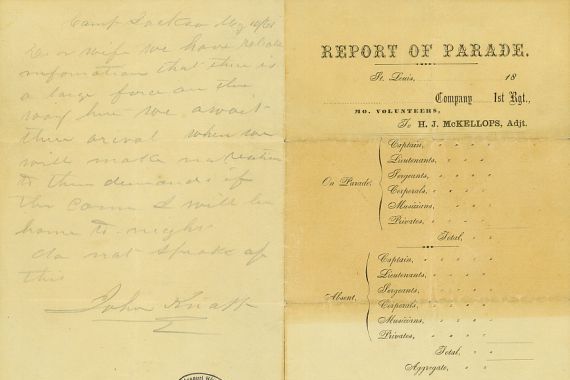 Camp Jackson May 10/61
Dear wife we have reliable
information that there is
a large force on the
way here we await
their arival when we
will make no resistance
to their demands if
they come I will be
home to night
do not speak of
this
John Knapp
REPORT OF PARADE.
St. Louis, 18
Company 1st Rgt.,
MO. VOLUNTEERS,
To H. J. McKELLOPS, Adjt.
On Parade,
Captain,
Lieutenants,
Sergeants,
Corporals,
Musicians,
Privates,
Total,
Absent,
Captain,
Lieutenants,
Sergeants,
Corporals,
Musicians,
Privates,
Total,
Aggregate,